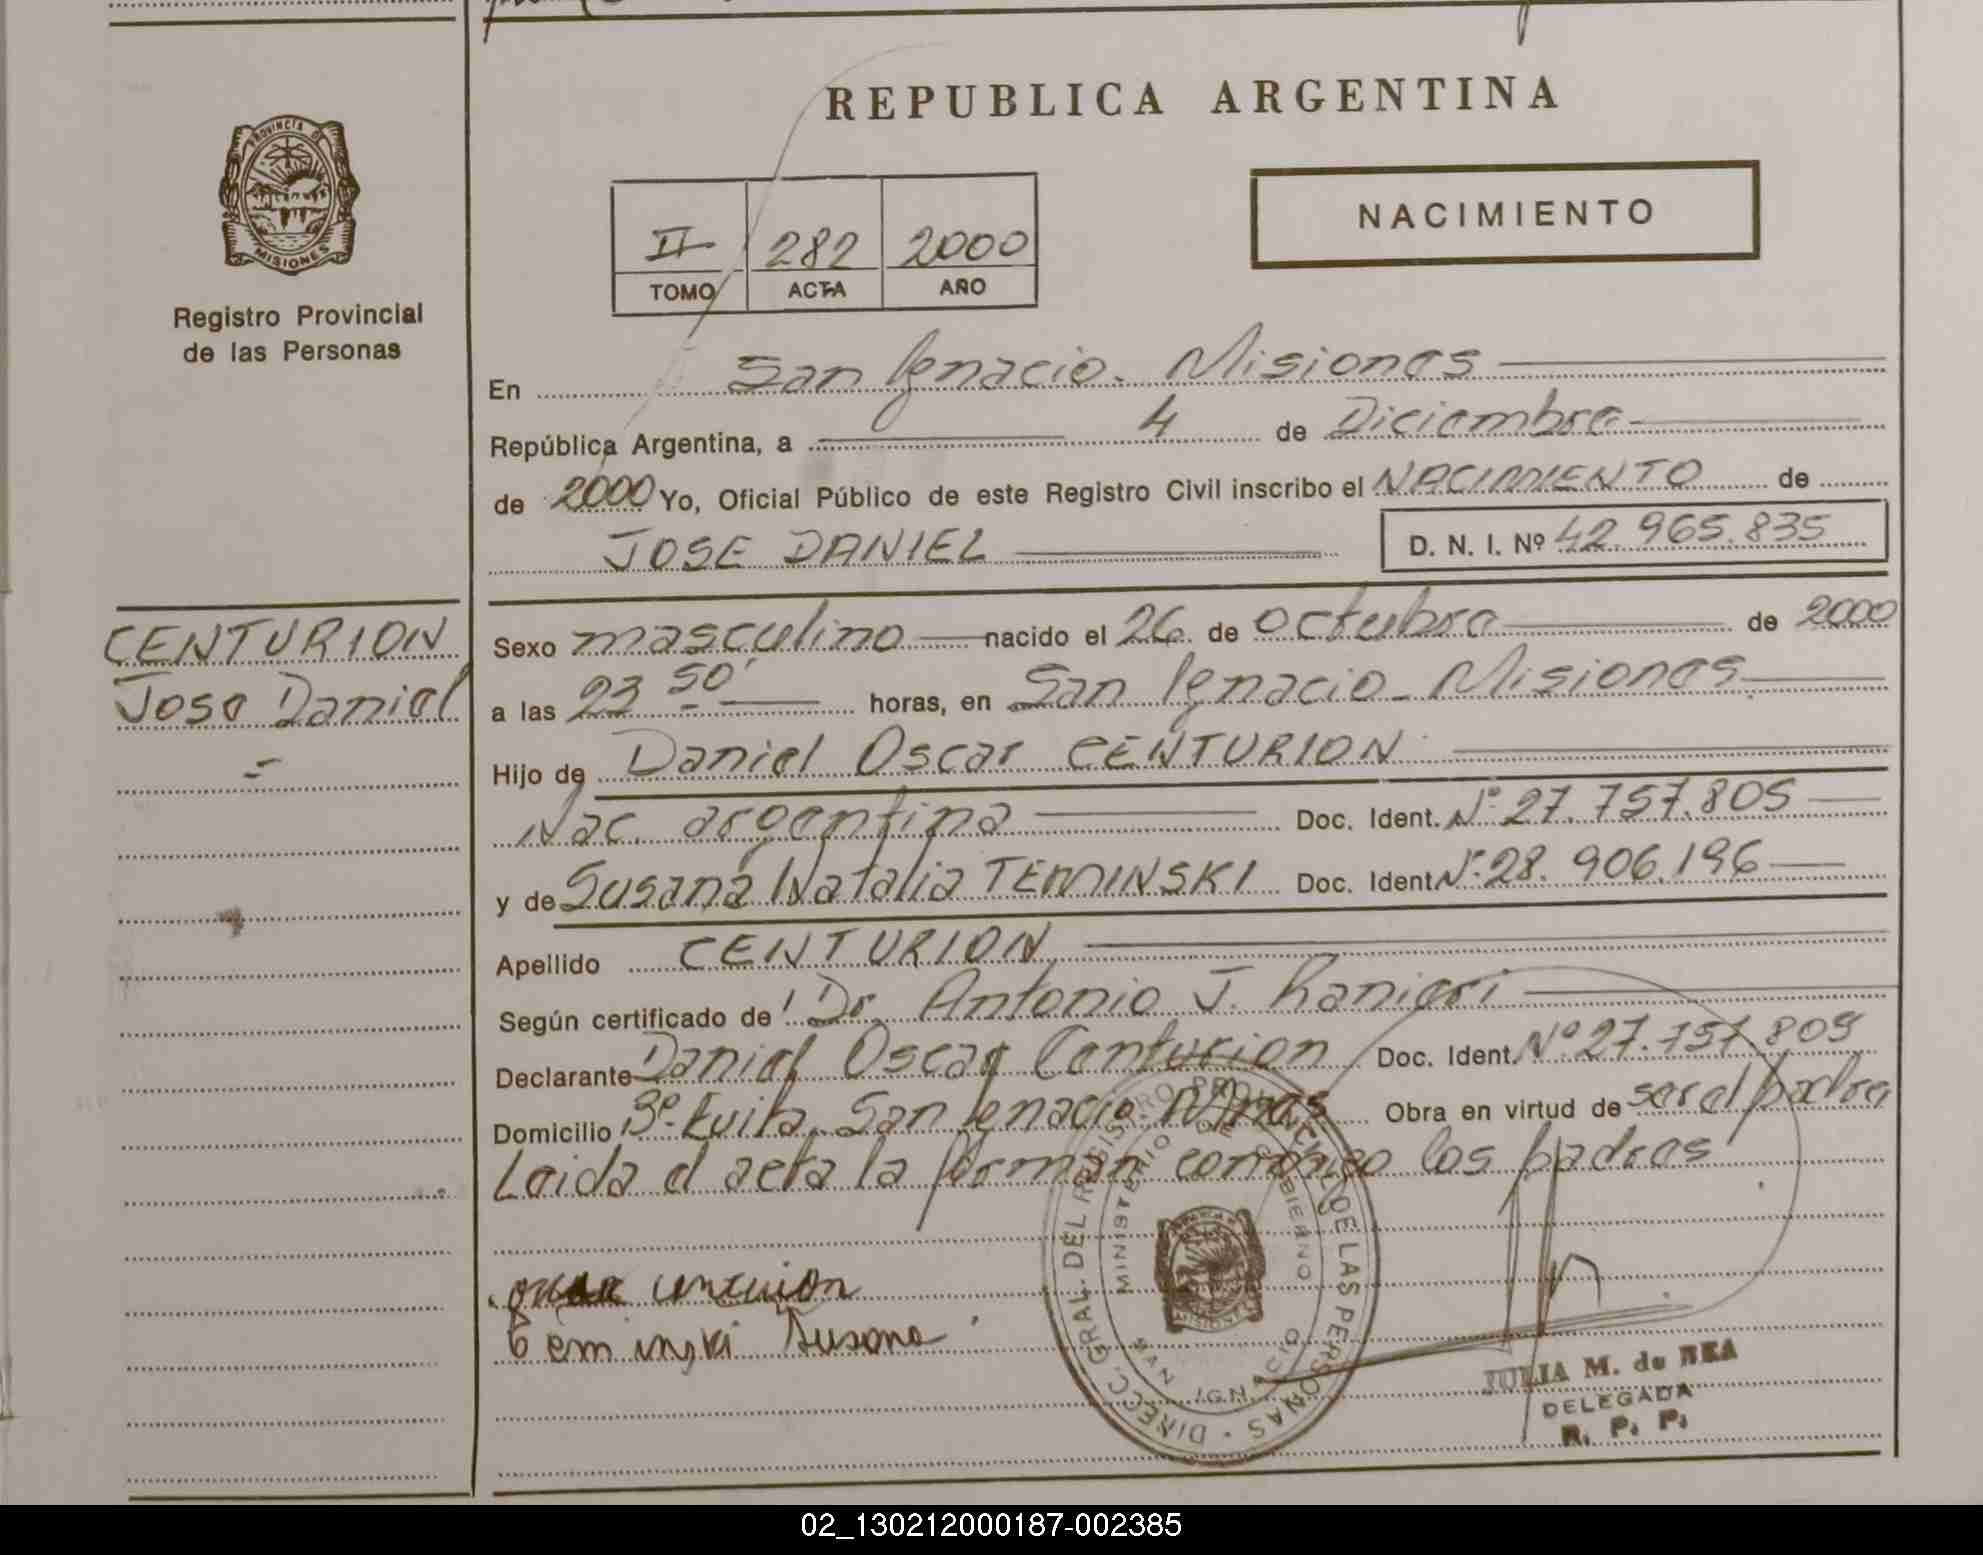 REPUBLICA ARGENTINA
PROVINCIA DE
MISIONES
Registro Provincial
de las Personas
II 282 2000
TOMO ACTA AÑO
NACIMIENTO
En San Ignacio. Misiones
República Argentina, a 4 de Diciembre
de 2000 Yo, Oficial Público de este Registro Civil inscribo el NACIMIENTO de
JOSE DANIEL D. N. I. Nº 42.965.835
CENTURION
Jose Daniel
Sexo masculino nacido el 26 de octubre de 2000
a las 23 50' horas, en San Ignacio - Misiones.
Hijo de Daniel Oscar CENTURION
Nac. argentina Doc. Ident. Nº 27.757.805
y de Susana Natalia TEMINSKI Doc. Ident Nº 28.906.196
Apellido CENTURION
Según certificado de Dr. Antonio J. Ranieri
Declarante Daniel Oscar Centurion Doc. Ident. Nº 27.757.805
Domicilio Bº Evita. San Ignacio. Mnes Obra en virtud de ser el padre
Leida el acta la firman conmigo los padres
Teminski Susana
DIRECC. GRAL. DEL REGISTRO PROVINCIAL DE LAS PERSONAS
MINISTERIO DE GOBIERNO
SAN IGNACIO
MISIONES
JULIA M. de REA
DELEGADA
R. P. P.
02_130212000187-002385